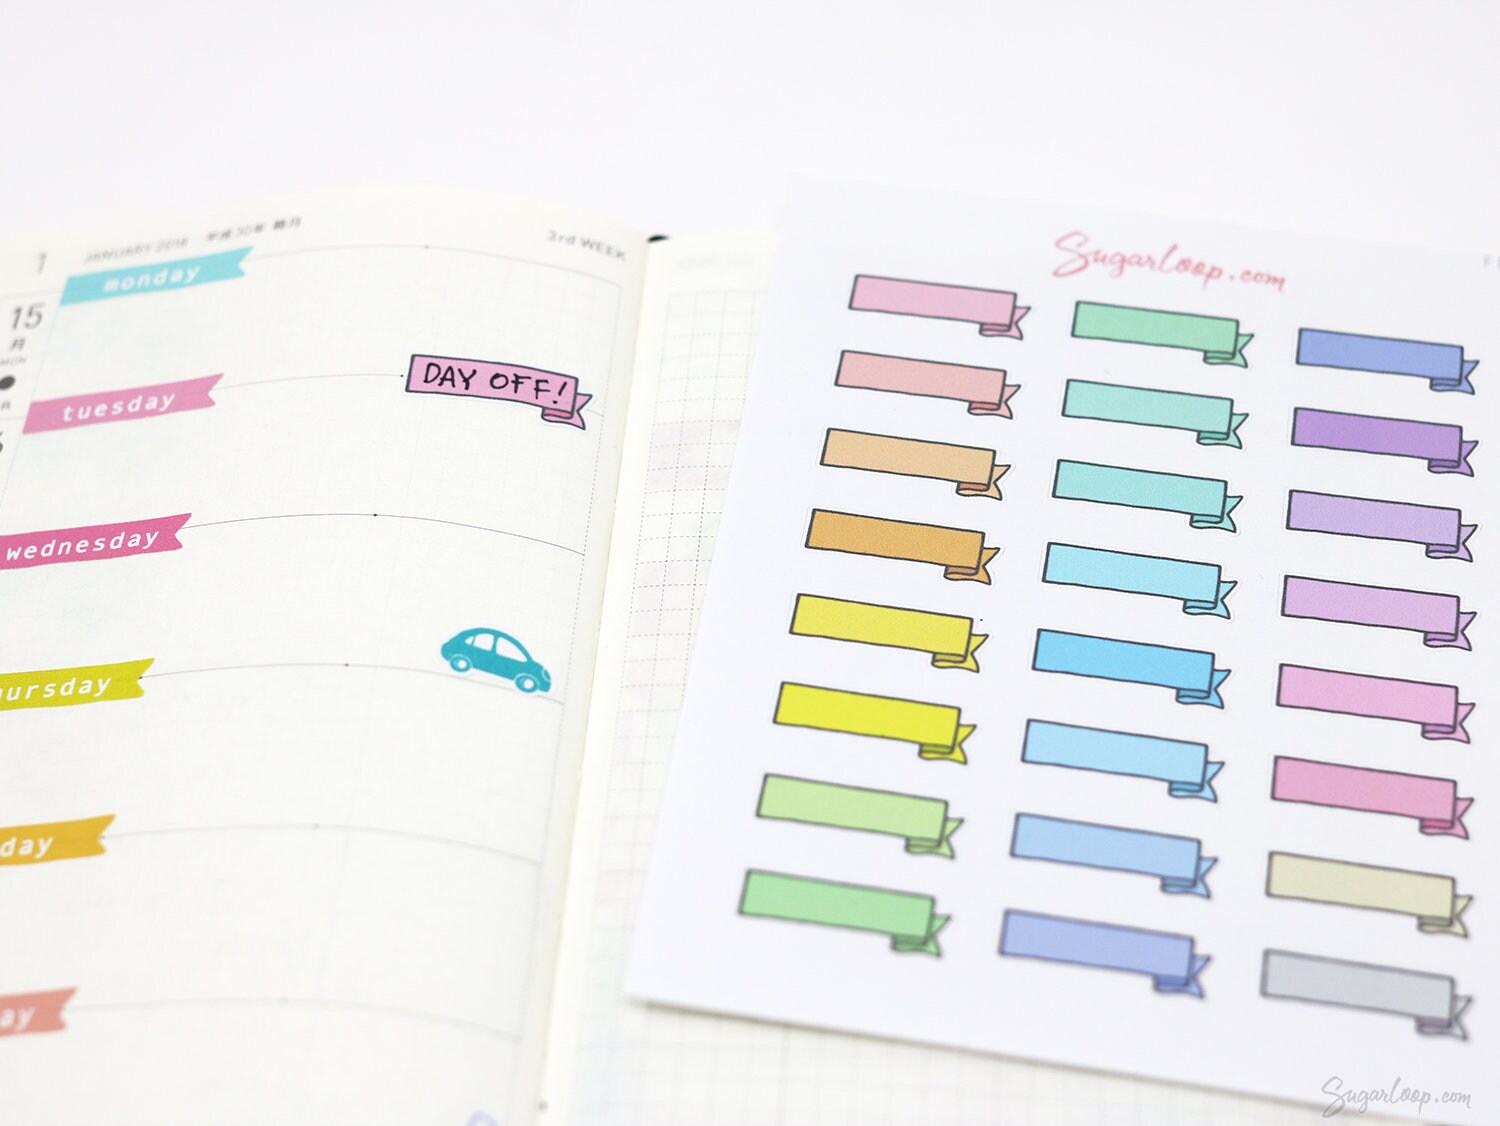 JANUARY 2018 平成30年 睦月
3rd WEEK
monday
15
月
MON
DAY OFF!
tuesday
wednesday
ursday
day
ay
Sugarloop.com
Sugarloop.com